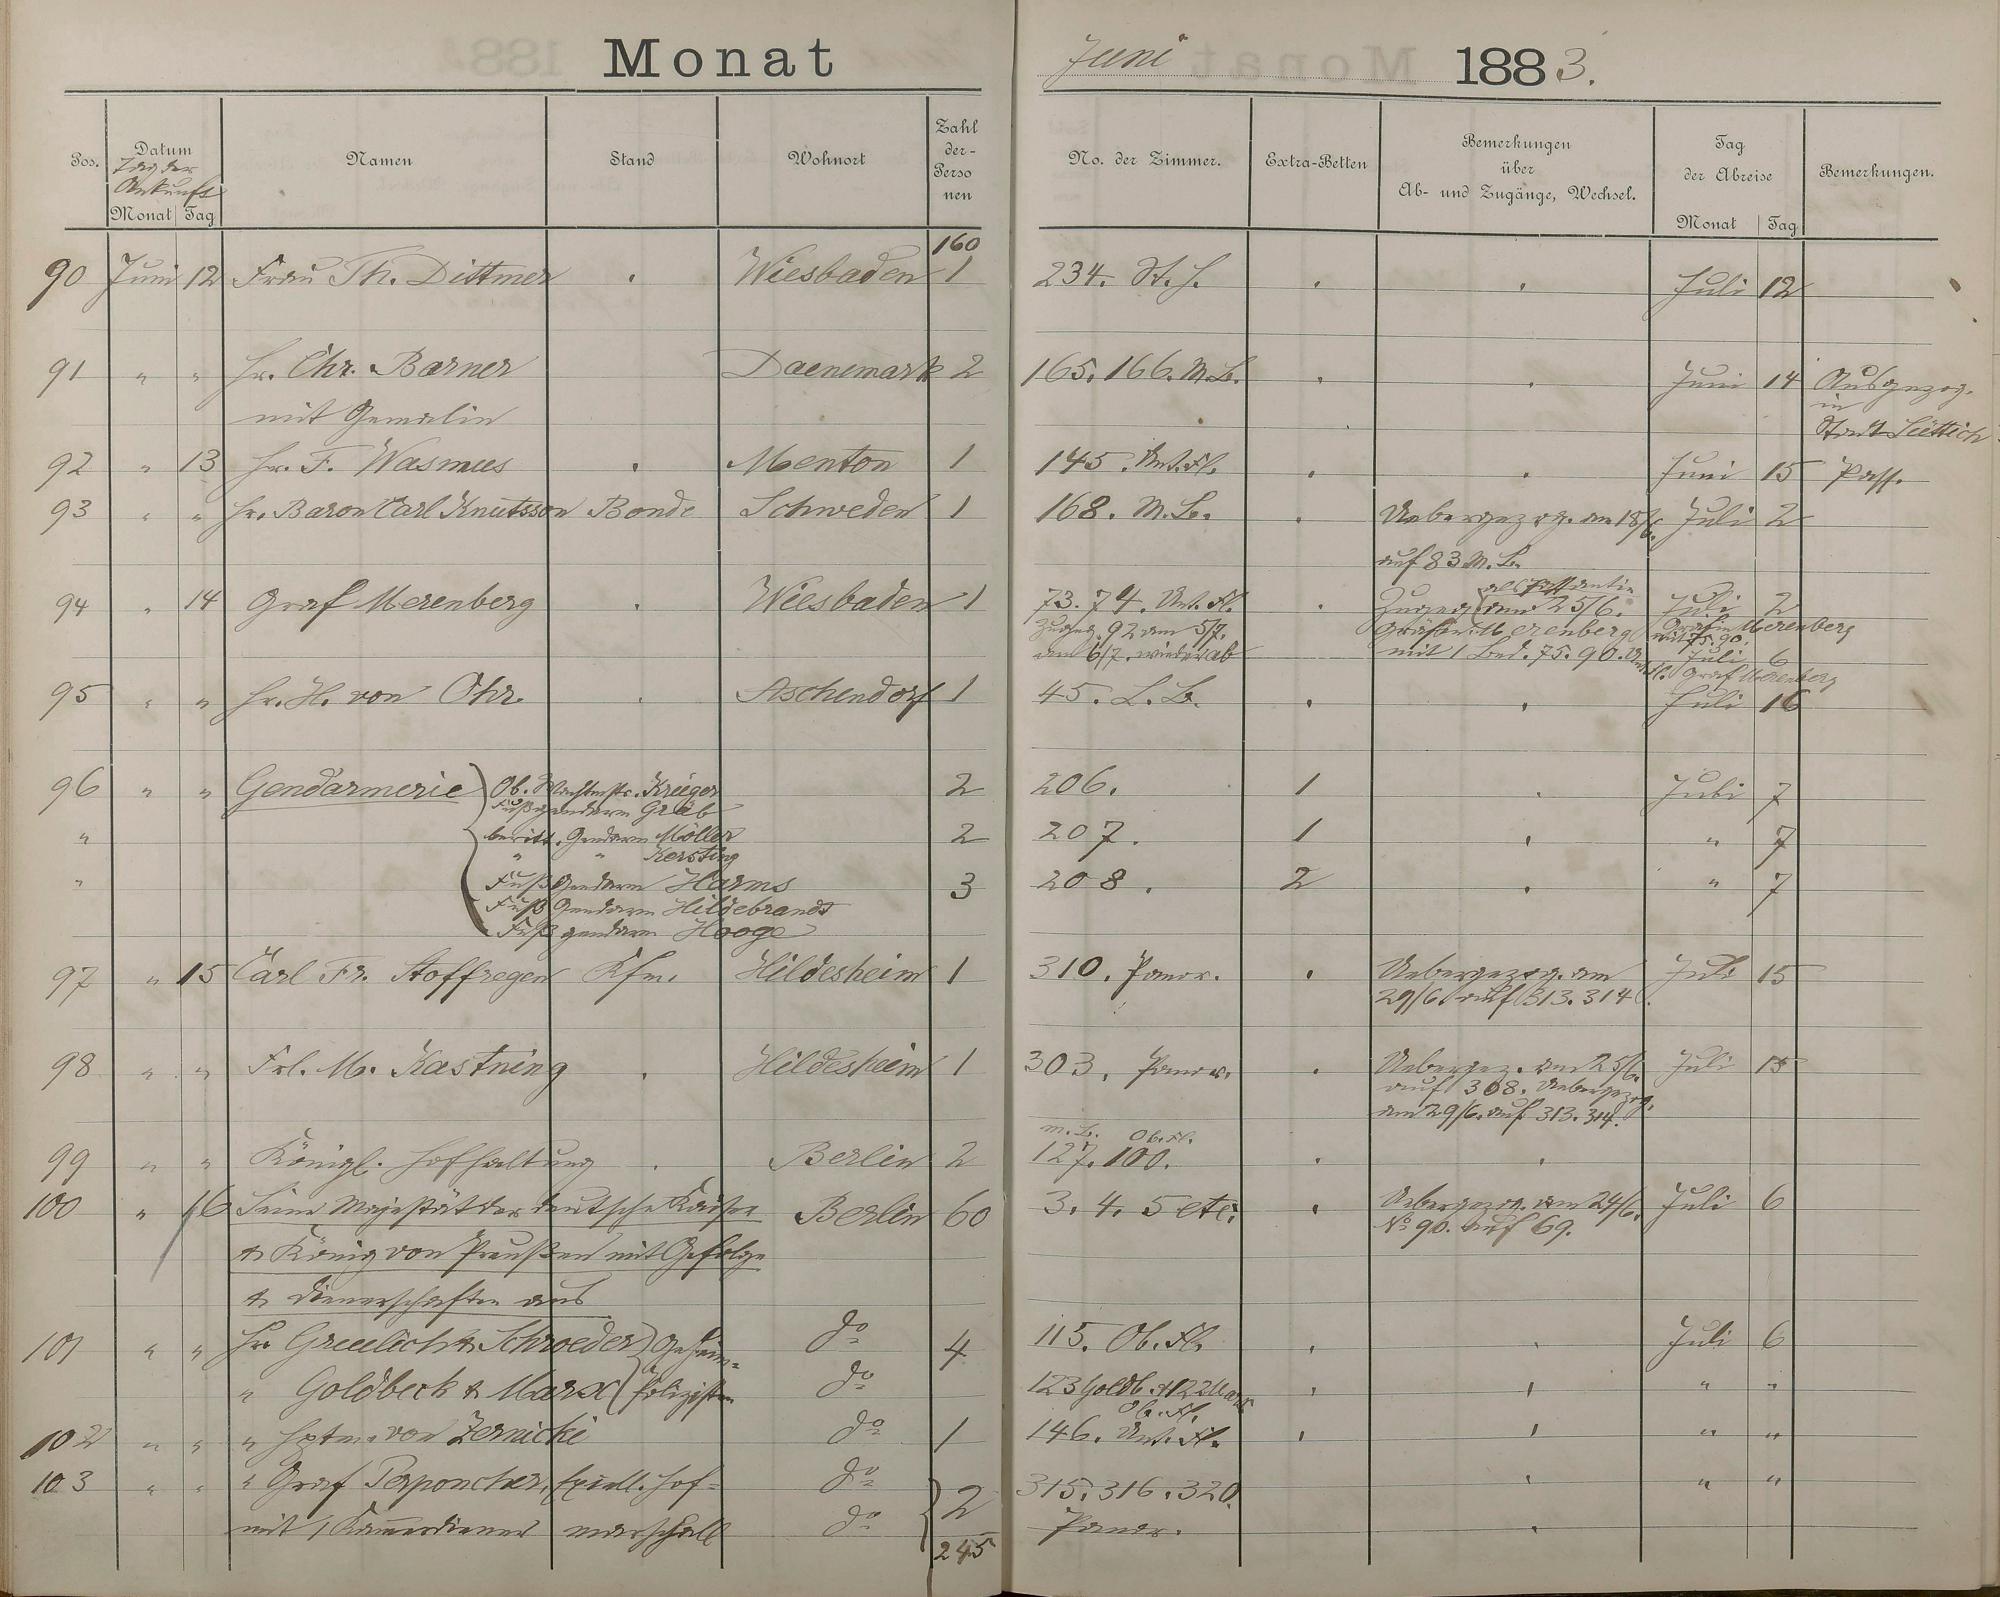 Monat Juni 1883.
Pos. Datum Namen Stand Wohnort Zahl der Personen No. der Zimmer. Extra-Betten Bemerkungen über Ab- und Zugänge, Wechsel. Tag der Abreise Bemerkungen.
Tag der Ankunft
Monat Tag Monat Tag
160
90 Juni 12 Frau Th. Dittmer " Wiesbaden 1 234. St. H. " " Juli 12
91 " " Hr. Chr. Barner Daenemark 2 165. 166. M.B. " " Juni 14 Ausgezog.
mit Gemalin in
Stadt Lüttich
92 " 13 Hr. F. Wasmus " Menton 1 145. Unt. Fl. " " Juni 15 Pass.
93 " " Hr. Baron Carl Knutsson Bonde Schweden 1 168. M.B. " Uebergezog. am 18/6. Juli 2
auf 83 M.B.
94 " 14 Graf Merenberg " Wiesbaden 1 73. 74. Unt. Fl. " Zugeg. am 25/6. Juli 2
Zugeg. 92 am 5/7. Gräfin Merenberg Gräfin Merenberg
am 6/7. wieder ab mit 1 Bed. 75. 90. Unt. Fl. mit 75. 90. Juli 6
Graf Merenberg
95 " " Hr. H. von Ohr " Aschendorf 1 45. L.B. " " Juli 16
96 " " Gendarmerie Ob. Wachtmstr. Krüger 2 206. 1 " Juli 7
Fußgendarm Gräb
" beritt. Gendarm Möller 2 207. 1 " " 7
" " Kersting
" Fuß Gendarm Harms 3 208. 2 " " 7
Fuß Gendarm Hildebrandt
Fuß gendarm Hooge
97 " 15 Carl Fr. Stoffregen Kfm. Hildesheim 1 310. Panor. " Uebergezog. am Juli 15
29/6. auf 313. 314.
98 " " Frl. M. Kastning " Hildesheim 1 303. Panor. " Uebergez. am 25/6. Juli 15
auf 308. Uebergezog.
am 29/6. auf 313. 314.
M.B. Ob. Fl.
99 " " Königl. Hofhaltung " Berlin 2 127. 100. " "
100 " 16 Seine Majestät der deutsche Kaiser Berlin 60 3. 4. 5 etc. " Uebergezog. am 24/6. Juli 6
& König von Preußen mit Gefolge No 90. auf 69.
& Dienerschaften aus
101 " " Hr. Greulich & Schroeder Geheim- do 4 115. Ob. Fl. " " Juli 6
" Goldbeck & Marx Polizisten do 123 Goldb. & 122 Marx " " " "
Ob. Fl.
102 " " " Hptm. von Zernicki do 1 146. Unt. Fl. " " " "
103 " " " Graf Perponcher, Excell. Hof- do 2 315. 316. 320. " " "
mit 1 Kammerdiener marschall do Panor. "
245